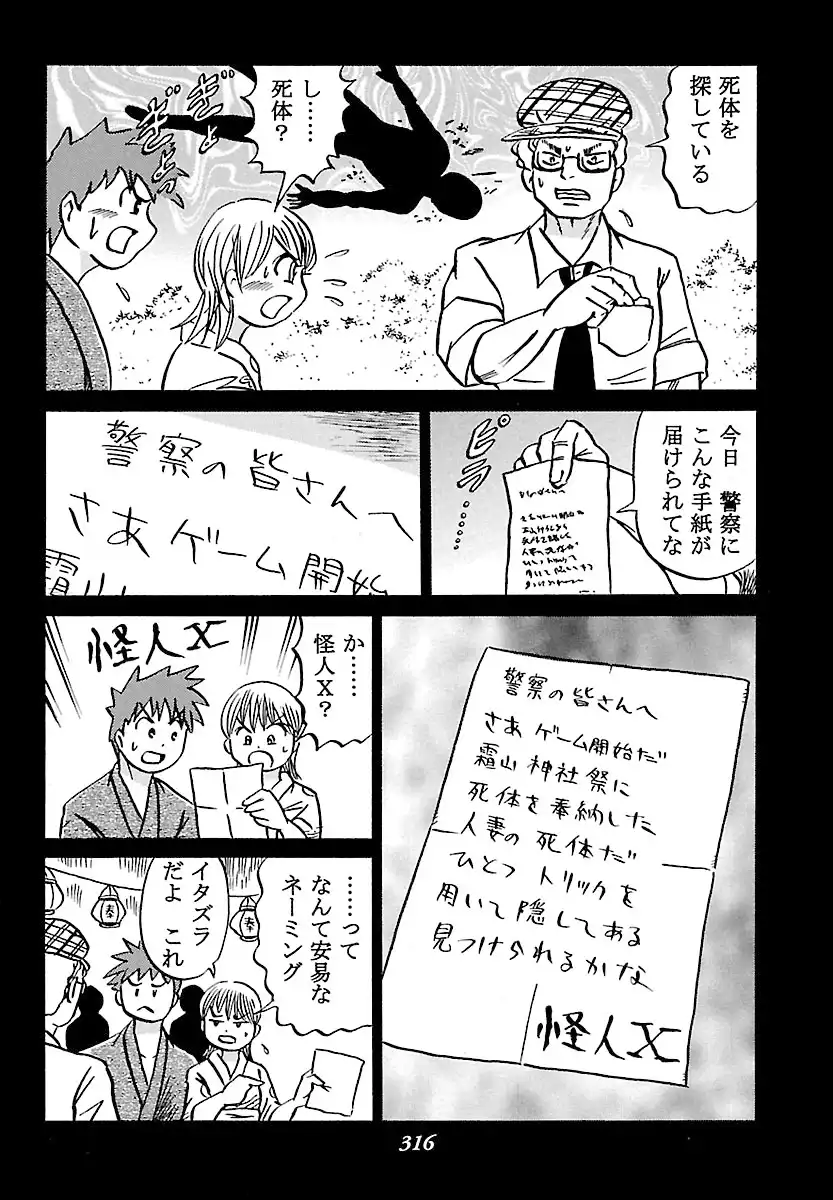 死体を
探している
し……
死体？
ぎょっ
ぎょっ
今日　警察に
こんな手紙が
届けられてな
ピラ……
警察の皆さんへ
さあ ゲーム開始
霜山
警察の皆さんへ
さあ ゲーム開始だ
霜山神社祭に
死体を奉納した
人妻の死体だ
ひとつ トリックを
用いて隠してある
見つけられるかな
怪人X
か……
怪人X？
怪人X
……って
なんて安易な
ネーミング
イタズラ
だよ　これ
奉
奉
316